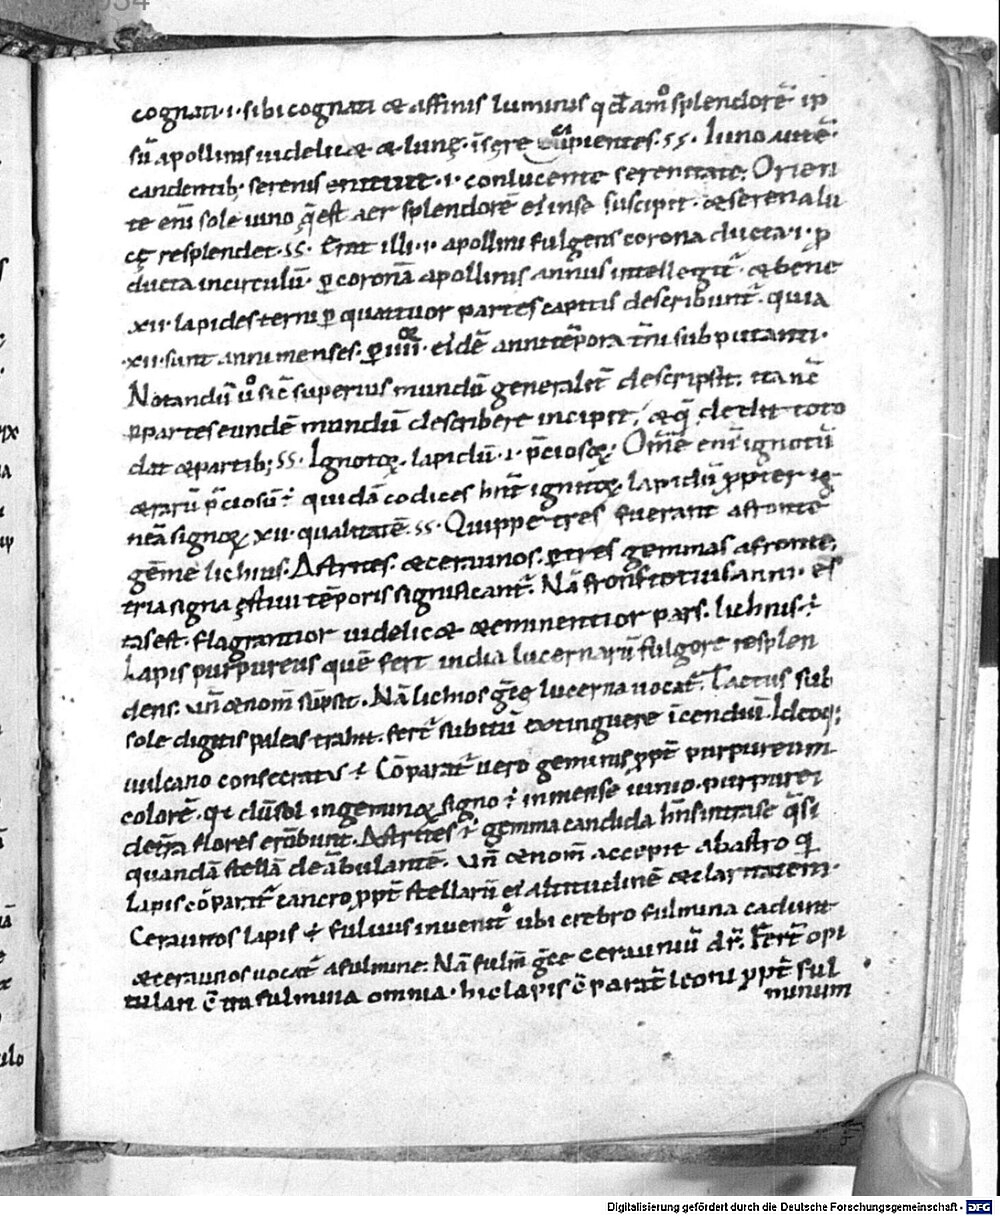 cognati·i·sibi cognati & affinis luminis qdā mo splendorē ip
sū apollinis uidelic& & lunę· īsere cupientes·ss· Iuno autē·
candentib; serenis enituit·i·conlucente serenitate; Orien
te eni sole uino q̄ est aer splendorē ei inse suscipit· & serena lu
cę resplendet·ss· Erat illi·i·apollini fulgens corona ducta·i·ꝑ
ducta in circulū· ꝑ coronā apollinis annus intellegit̄· & bene
xii·lapides terni ꝑ quattuor partes capitis describunt̄· quia
·xii·sunt anni menses· ꝑ iiii· eidē anni tēpora t̄ni subputanti·
Notandū u° sic̄ superius mundū generalit̄ descripsit; ita nc̄
ꝑ partes eundē mundū describere incipit; & q̄ dedit toto
dat & partib; ss· Ignotoꝝ· lapidū·i·p̄ciosoꝝ· Om̄e eni ignotū
& rarū p̄ciosū ÷ quidā codices hn̄t ignitoꝝ lapidū ꝓpter ig
neā signoꝝ xii·qualitatē·ss· Quippe tres fuerant a fronte
gēme lichius· Astrites· & ceraunos· ꝑ tres gemmas a fronte;
tria signa ęstiui tēporis significant̄· Nā frons totius anni· ēs
tas est· flagrantior uidelic& & eminentior pars· lichnis ÷
Lapis purpureus quē fert india lucernarū fulgore resplen
dens· un̄ & nom̄ sūpsit· Nā lichios gēe lucerna uocat̄· Tactus sub
sole digitis paleas trahit· fert̄ subitū extinguere īcendiū· Ideoq;
uulcano consecratus ÷ Cōparat̄ uero geminis ꝓpt̄ purpureum
colorē· qa dū sol in geminoꝝ signo ÷ in mense iunio·purpurei
de tr̄a flores erūbunt· Astrites ÷ gemma candida hn̄s intra se q̄si
quandā stellā deābulantē· un̄ & nom̄ accepit ab astro q
Lapis cōparat̄ cancro ꝓpt̄ stellarū ei altitudinē & claritatem·
Ceraunos lapis ÷ fuluus inuenit̄ ubi crebro fulmina cadunt
& ceraunos uocat̄ a fulmine· Nā fulm̄ gēe cerauniū dr̄· Fert̄ opi
tulari c̄tra fulmina omnia· hic lapis cōparat̄ leoni ꝓpt̄ ful
minum
Digitalisierung gefördert durch die Deutsche Forschungsgemeinschaft - DFG